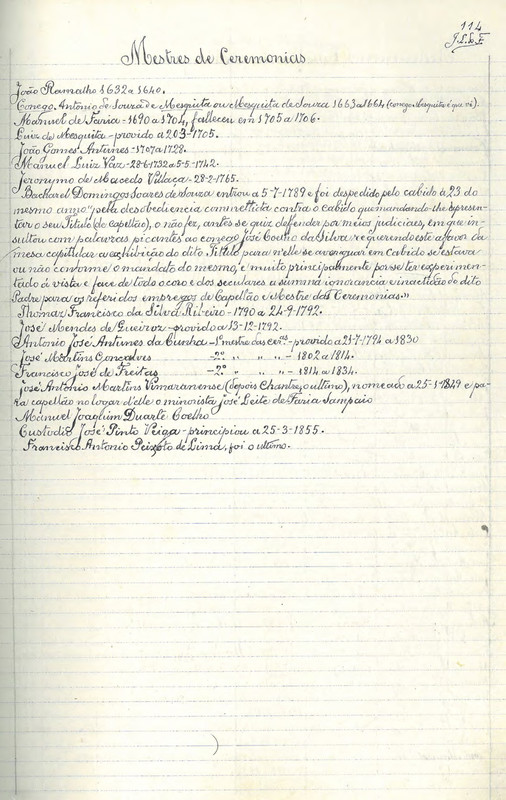 114
J.L.F.
Mestres de Ceremonias
João Ramalho 1632 a 1640.
Conego Antonio de Souza e Mesquita ou Mesquita de Souza 1663 a 1664 (conego Mesquita é que vi).
Manuel de Faria - 1690 a 1704, falleceu em 1705 a 1706.
Luiz de Mesquita - provido a 20-3-1705.
João Gomes Antunes - 1707 a 1728.
Manuel Luiz Vaz - 28-6-1732 a 5-5-1742.
Jeronymo de Macedo Villaça - 28-2-1765.
Bacharel Domingos Soares de Souza entrou a 5-7-1789 e foi despedido pelo cabido a 23 do
mesmo anno "pela desobediencia commettida contra o cabido que mandando-lhe apresen-
tar o seu Titulo (do capellão), o não fez, antes se quiz defender por meios judiciaes, em que in-
sultou com palavras picantes ao conego José Coelho da Silva requerendo este a favor da
mesa capitular a exhibição do dito Titulo para n'elle se averiguar em Cabido se estava
ou não conforme o mandato do mesmo, e muito principalmente por se ter experimen-
tado á vista e face de todo o coro e dos seculares a summa ignorancia e inaptidão do dito
Padre para os referidos empregos de Capellão e Mestre das Ceremonias."
Thomaz Francisco da Silva Ribeiro - 1790 a 24-9-1792.
José Mendes de Queiroz - provido a 13-12-1792.
Antonio José Antunes da Cunha - 1º mestre das cer.as - provido a 21-7-1794 a 1830
José Martins Gonçalves - 2º " " " - 1802 a 1814.
Francisco José de Freitas - 2º " " " - 1814 a 1834.
José Antonio Martins Vimaranense (depois Chantre, o ultimo), nomeado a 25-1-1849 e pa-
ra capellão no logar d'elle o minorista José Leite de Faria Sampaio
Manuel Joaquim Duarte Coelho
Custodio José Pinto Veiga - principiou a 25-3-1855.
Francisco Antonio Peixoto de Lima, foi o ultimo.